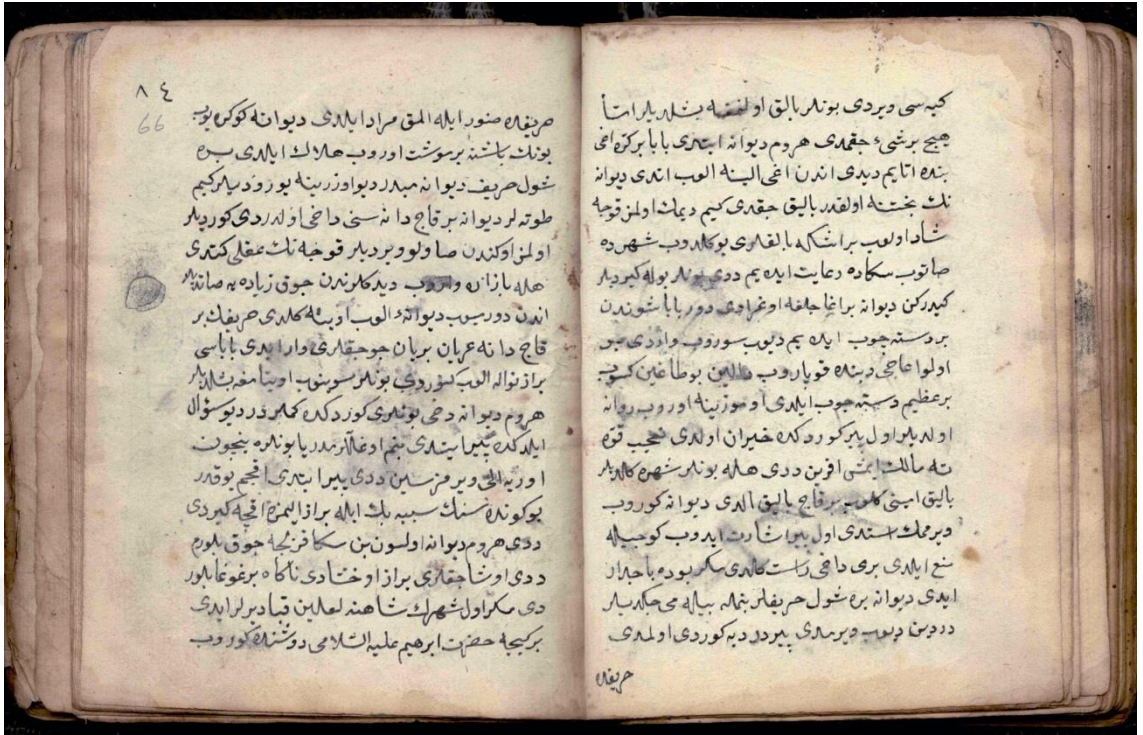 كیه سی ویردی بونلر بالق اولفنه بشلدیلر اتا
هیچ برشیء جقمدی هروم دیوانه ایتدی بابا برکره اغی
بنده اتایم دیدی اندن اغی الینه الوب اتدی دیوانه
نك بختنه اولقدر بالیق جقدی كیم دیمك اولمز قوجه
شاد اولوب براشكه بالقلری یوكلدوب شهرده
صاتوب سكاده رعایت ایده یم ددی بونلر بویله كیردیلر
كیدركن دیوانه براغاجلغه اوغرادی دور بابا شوندن
بر دسته چوب ایده یم دیوب سوروب واردی
اولو اغاجی دبنده قوپاروب دالین بوداغین كسوب
بر عظیم دسته چوب ایلدی اوموزینه اوروب روانه
اولدیلر اول پیر كوردكده حیران اولدی نعجب قوة
ته مالك ایمش افرین ددی هله بونلر شهره كلدیلر
بالیق امینی كلوب بر قاچ بالیق الدی دیوانه كوروب
ویرممك استدی اول پیر اشارت ایدوب كوجیله
منع ایلدی بری داخی راست كلدی مكر بوده باجدار
ایدی دیوانه بره شول حریفلر بنمله بیله می جكدیلر
دردین دیوب ویرمدی پیر در دیه كوردی اولمدی
حریفده
٨٤
66
حریفده ضور ایله المق مراد ایلدی دیوانه كوكره یوب
بونك باشنه بر مشت اوروب هلاك ایلدی بره
شول حریف دیوانه میدر دیو اوزرینه یورودیلر كیم
طوته لر دیوانه بر قاچ دانه سنی داخی اولدردی كوردیلر
اولمز اوكندن صاولو ویردیلر قوجه نك عقلی كتدی
هله بازاره واروب دیدكلرندن چوق زیاده یه صاتدیلر
اندن دوریوب دیوانه ء الوب اوینه كلدی حریفك بر
قاچ دانه عریان بریان جوجقلری وار ایدی باباسی
براز نواله الوب كتوردی بونلر سوینوب اوینامغه بشلدیلر
هروم دیوانه دخی بونلری كوردكده كملردر دیو سؤال
ایلدكده پیر ایتدی بنم اوغللرمدر یا بونلره نیچون
اوزیه الی ویرمزسین ددی پیر ایتدی اقچم یوقدر
بو كونده سنك سببیه بك ایله براز الیمزه اقچه كیردی
ددی هروم دیوانه اولسون بن سكا قزیجه چوق بلورم
ددی اوشاجقلری براز اوخشادی ناكاه بر غوغا بلور
دی مكر اول شهرك شاهنه لعلین قباد دیرلر ایدی
بر كیجه حضرت ابرهیم علیه السلامی دوشنده كوروب